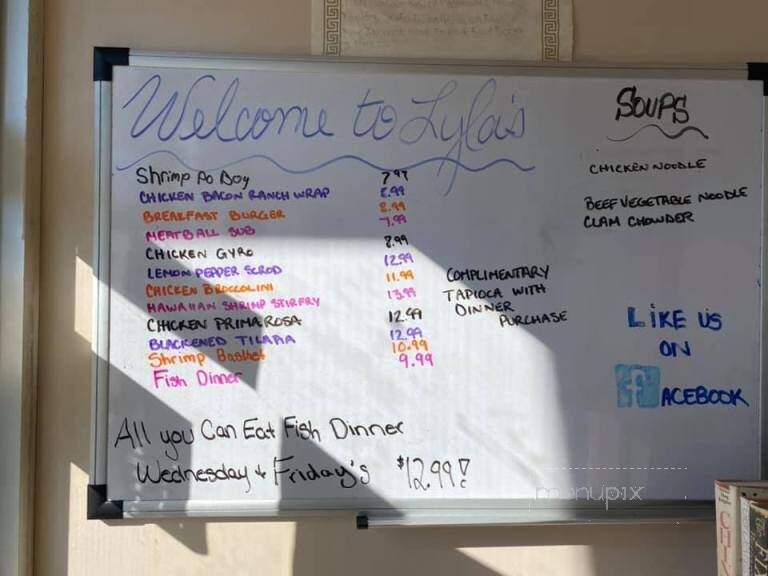 Welcome to Lyla's
Shrimp Po Boy 7.99
CHICKEN BACON RANCH WRAP 8.99
BREAKFAST BURGER 8.99
MEATBALL SUB 7.99
CHICKEN GYRO 8.99
LEMON PEPPER SCROD 12.99
CHICKEN BROCCOLINI 11.99
HAWAIIAN SHRIMP STIRFRY 13.99
CHICKEN PRIMAROSA 12.99
BLACKENED TILAPIA 12.99
Shrimp Basket 10.99
Fish Dinner 9.99
COMPLIMENTARY
TAPIOCA WITH
DINNER
PURCHASE
All you Can Eat Fish Dinner
Wednesday & Friday's $12.99!
SOUPS
CHICKEN NOODLE
BEEF VEGETABLE NOODLE
CLAM CHOWDER
LIKE US
ON
FACEBOOK
menupix